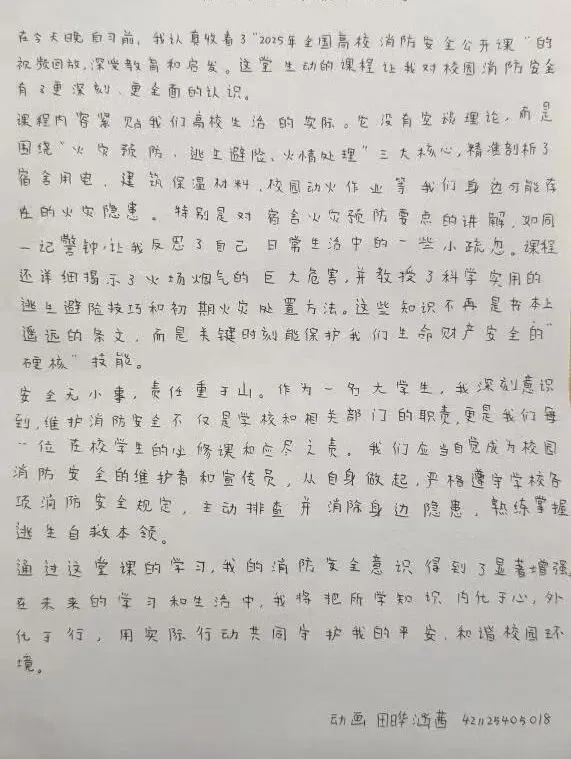 在今天晚自习前，我认真收看了“2025年全国高校消防安全公开课”的
视频回放，深受教育和启发。这堂生动的课程让我对校园消防安全
有了更深刻、更全面的认识。
课程内容紧贴我们高校生活的实际。它没有空谈理论，而是
围绕“火灾预防、逃生避险、火情处理”三大核心，精准剖析了
宿舍用电、建筑保温材料、校园动火作业等我们身边可能存
在的火灾隐患。特别是对宿舍火灾预防要点的讲解，如同
一记警钟，让我反思了自己日常生活中的一些小疏忽。课程
还详细揭示了火场烟气的巨大危害，并教授了科学实用的
逃生避险技巧和初期火灾处置方法。这些知识不再是书本上
遥远的条文，而是关键时刻能保护我们生命财产安全的“
硬核”技能。
安全无小事，责任重于山。作为一名大学生，我深刻意识
到，维护消防安全不仅是学校和相关部门的职责，更是我们每
一位在校学生的必修课和应尽之责。我们应当自觉成为校园
消防安全的维护者和宣传员，从自身做起，严格遵守学校各
项消防安全规定，主动排查并消除身边隐患，熟练掌握
逃生自救本领。
通过这堂课的学习，我的消防安全意识得到了显著增强。
在未来的学习和生活中，我将把所学知识内化于心，外
化于行，用实际行动共同守护我的平安、和谐校园环
境。
动画 田晔涵茜 421125405018